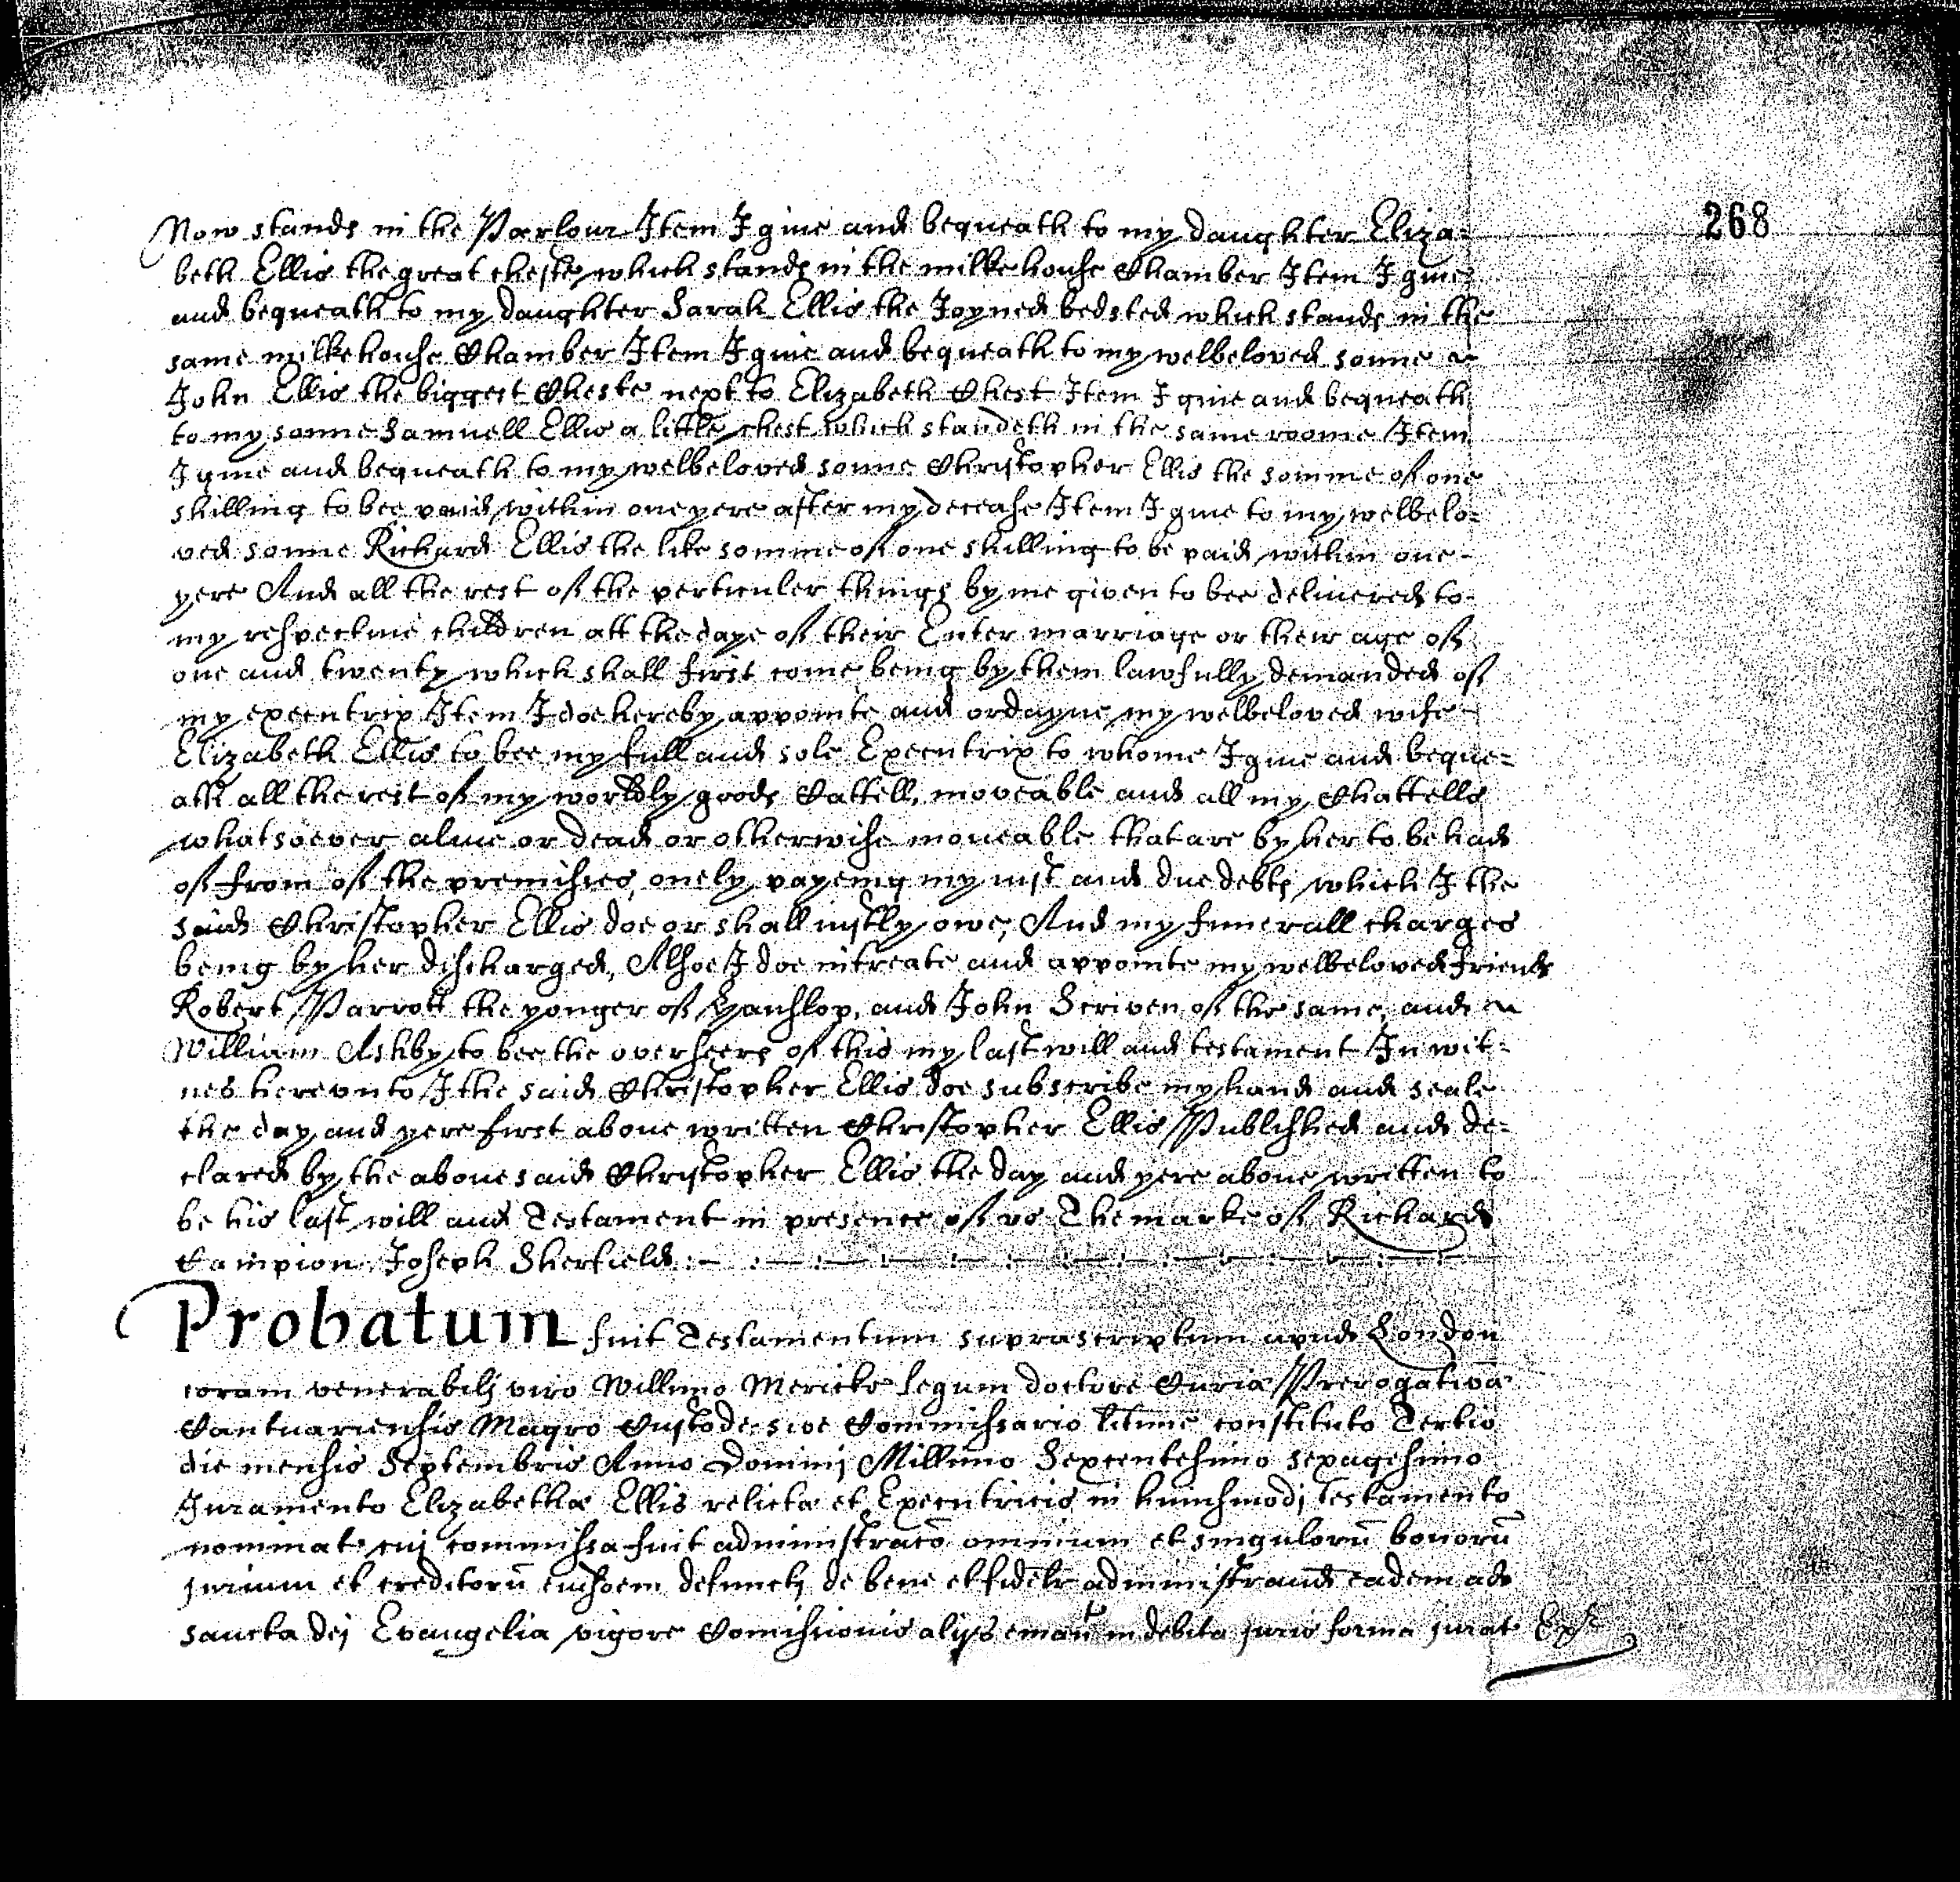 268
Now stands in the Parlour Item I giue and bequeath to my daughter Eliza=
beth Ellis the great cheste which stands in the milkehouse Chamber Item I giue
and bequeath to my daughter Sarah Ellis the Joyned bedsted which stands in the
same milkehouse Chamber Item I giue and bequeath to my welbeloved sonne
John Ellis the biggest Cheste next to Elizabeth Chest Item I giue and bequeath
to my sonne Samuell Ellis a little chest which standeth in the same roome Item
I giue and bequeath to my welbeloved sonne Christopher Ellis the somme of one
shilling to bee paid within one yere after my decease Item I giue to my welbelo=
ved sonne Richard Ellis the like somme of one shilling to be paid within one
yere And all the rest of the perticuler things by me given to bee deliuered to
my respectiue children att the daye of their Enter marriage or their age of
one and twenty which shall first come being by them lawfully demanded of
my executrix Item I doe hereby appointe and ordayne my welbeloved wife
Elizabeth Ellis to bee my full and sole Executrix to whome I giue and beque=
ath all the rest of my worldly goods Cattell, moveable and all my Chattells
whatsoever aliue or dead or otherwise moueable that are by her to be had
of from of the premisses, onely payeing my iust and due debts which I the
said Christopher Ellis doe or shall iustly owe, And my funerall charges
being by her discharged, Alsoe I doe intreate and appointe my welbeloved friends
Robert Parrott the yonger of Hanslop, and John Scriven of the same, and
William Ashby to bee the overseers of this my last will and testament In wit=
nes herevnto I the said Christopher Ellis doe subscribe my hand and seale
the day and yere first aboue written Christopher Ellis Publshed and de=
clared by the aboue said Christopher Ellis the day and yere aboue written to
be his last will and Testament in presence of vs The marke of Richard
Campion Joseph Sherfield
Probatum fuit Testamentum suprascriptum apud London
coram venerabilj viro Willimo Mericke legum doctore Curiæ Prerogativæ
Cantuariensis Magro Custode sive Commissario ltime constituto Tertio
die mensis Septembris Anno Dominj Millimo Sexcentesimo sexagesimo
Juramento Elizabethæ Ellis relictæ et Executricis in huiusmodj testamento
nominat cuj commissa fuit administracō omnium et singulorū bonorū
jurium et creditorū eiusdem defunctj de bene et fidelr administrand eadem ad
sancta dej Evangelia vigore Comissionis aljs eman in debita juris forma jurat Exr